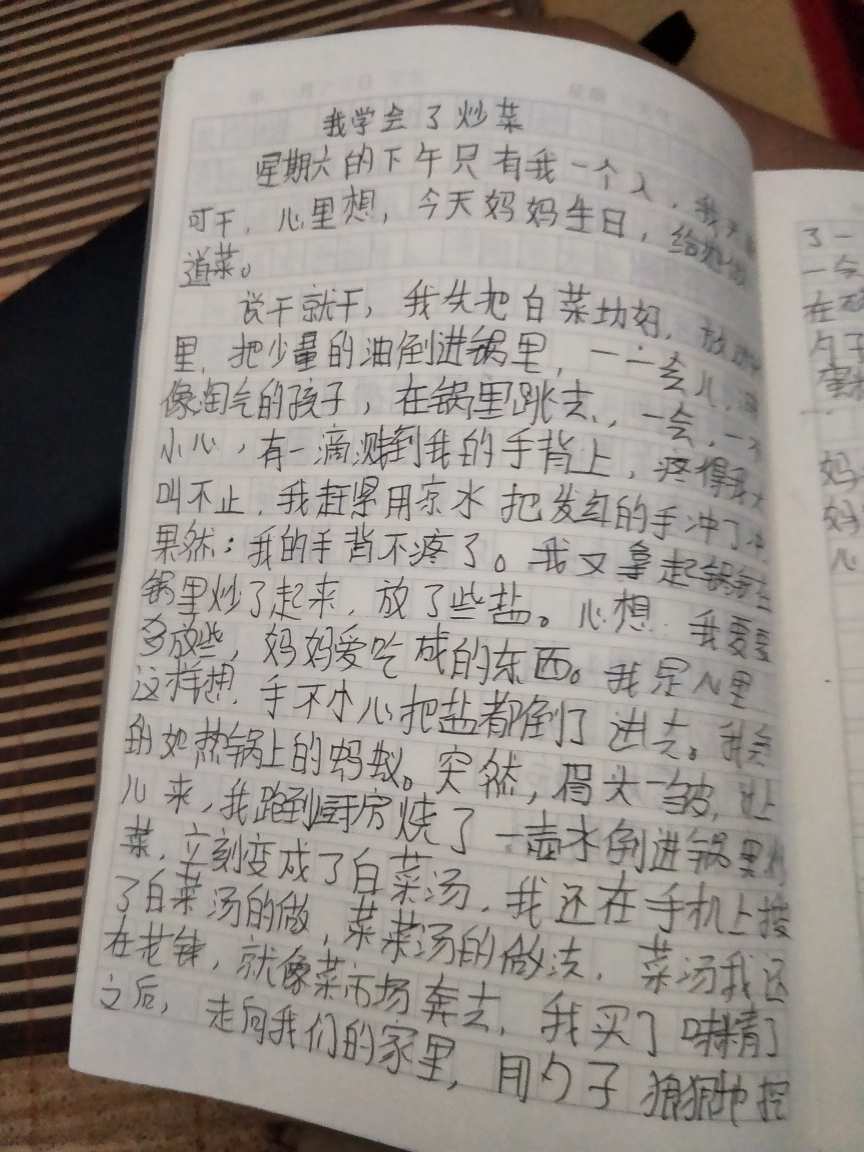 我学会了炒菜
星期六的下午只有我一个人，我
可干，心里想，今天妈妈生日，给她做
道菜。
说干就干，我先把白菜切好，放
里，把少量的油倒进锅里，一一会儿，
像淘气的孩子，在锅里跳去，一会，一不
小心，有一滴溅到我的手背上，疼得我大
叫不止，我赶紧用凉水把发红的手冲了冲
果然：我的手背不疼了。我又拿起锅铲在
锅里炒了起来，放了些盐。心想，我要要
多放些，妈妈爱吃咸的东西。我是心里
这样想，手不小心把盐都倒了进去。我急
的如热锅上的蚂蚁。突然，眉头一皱，上
儿来，我跑到厨房烧了一壶水倒进锅里
菜，立刻变成了白菜汤，我还在手机上搜
了白菜汤的做，菜菜汤的做法，菜汤我还
在花钱，就像菜市场奔去，我买了味精了
之后，走向我们的家里，用勺子狠狠地挖
了一
一会
在
勺子
蜜
妈
妈
心